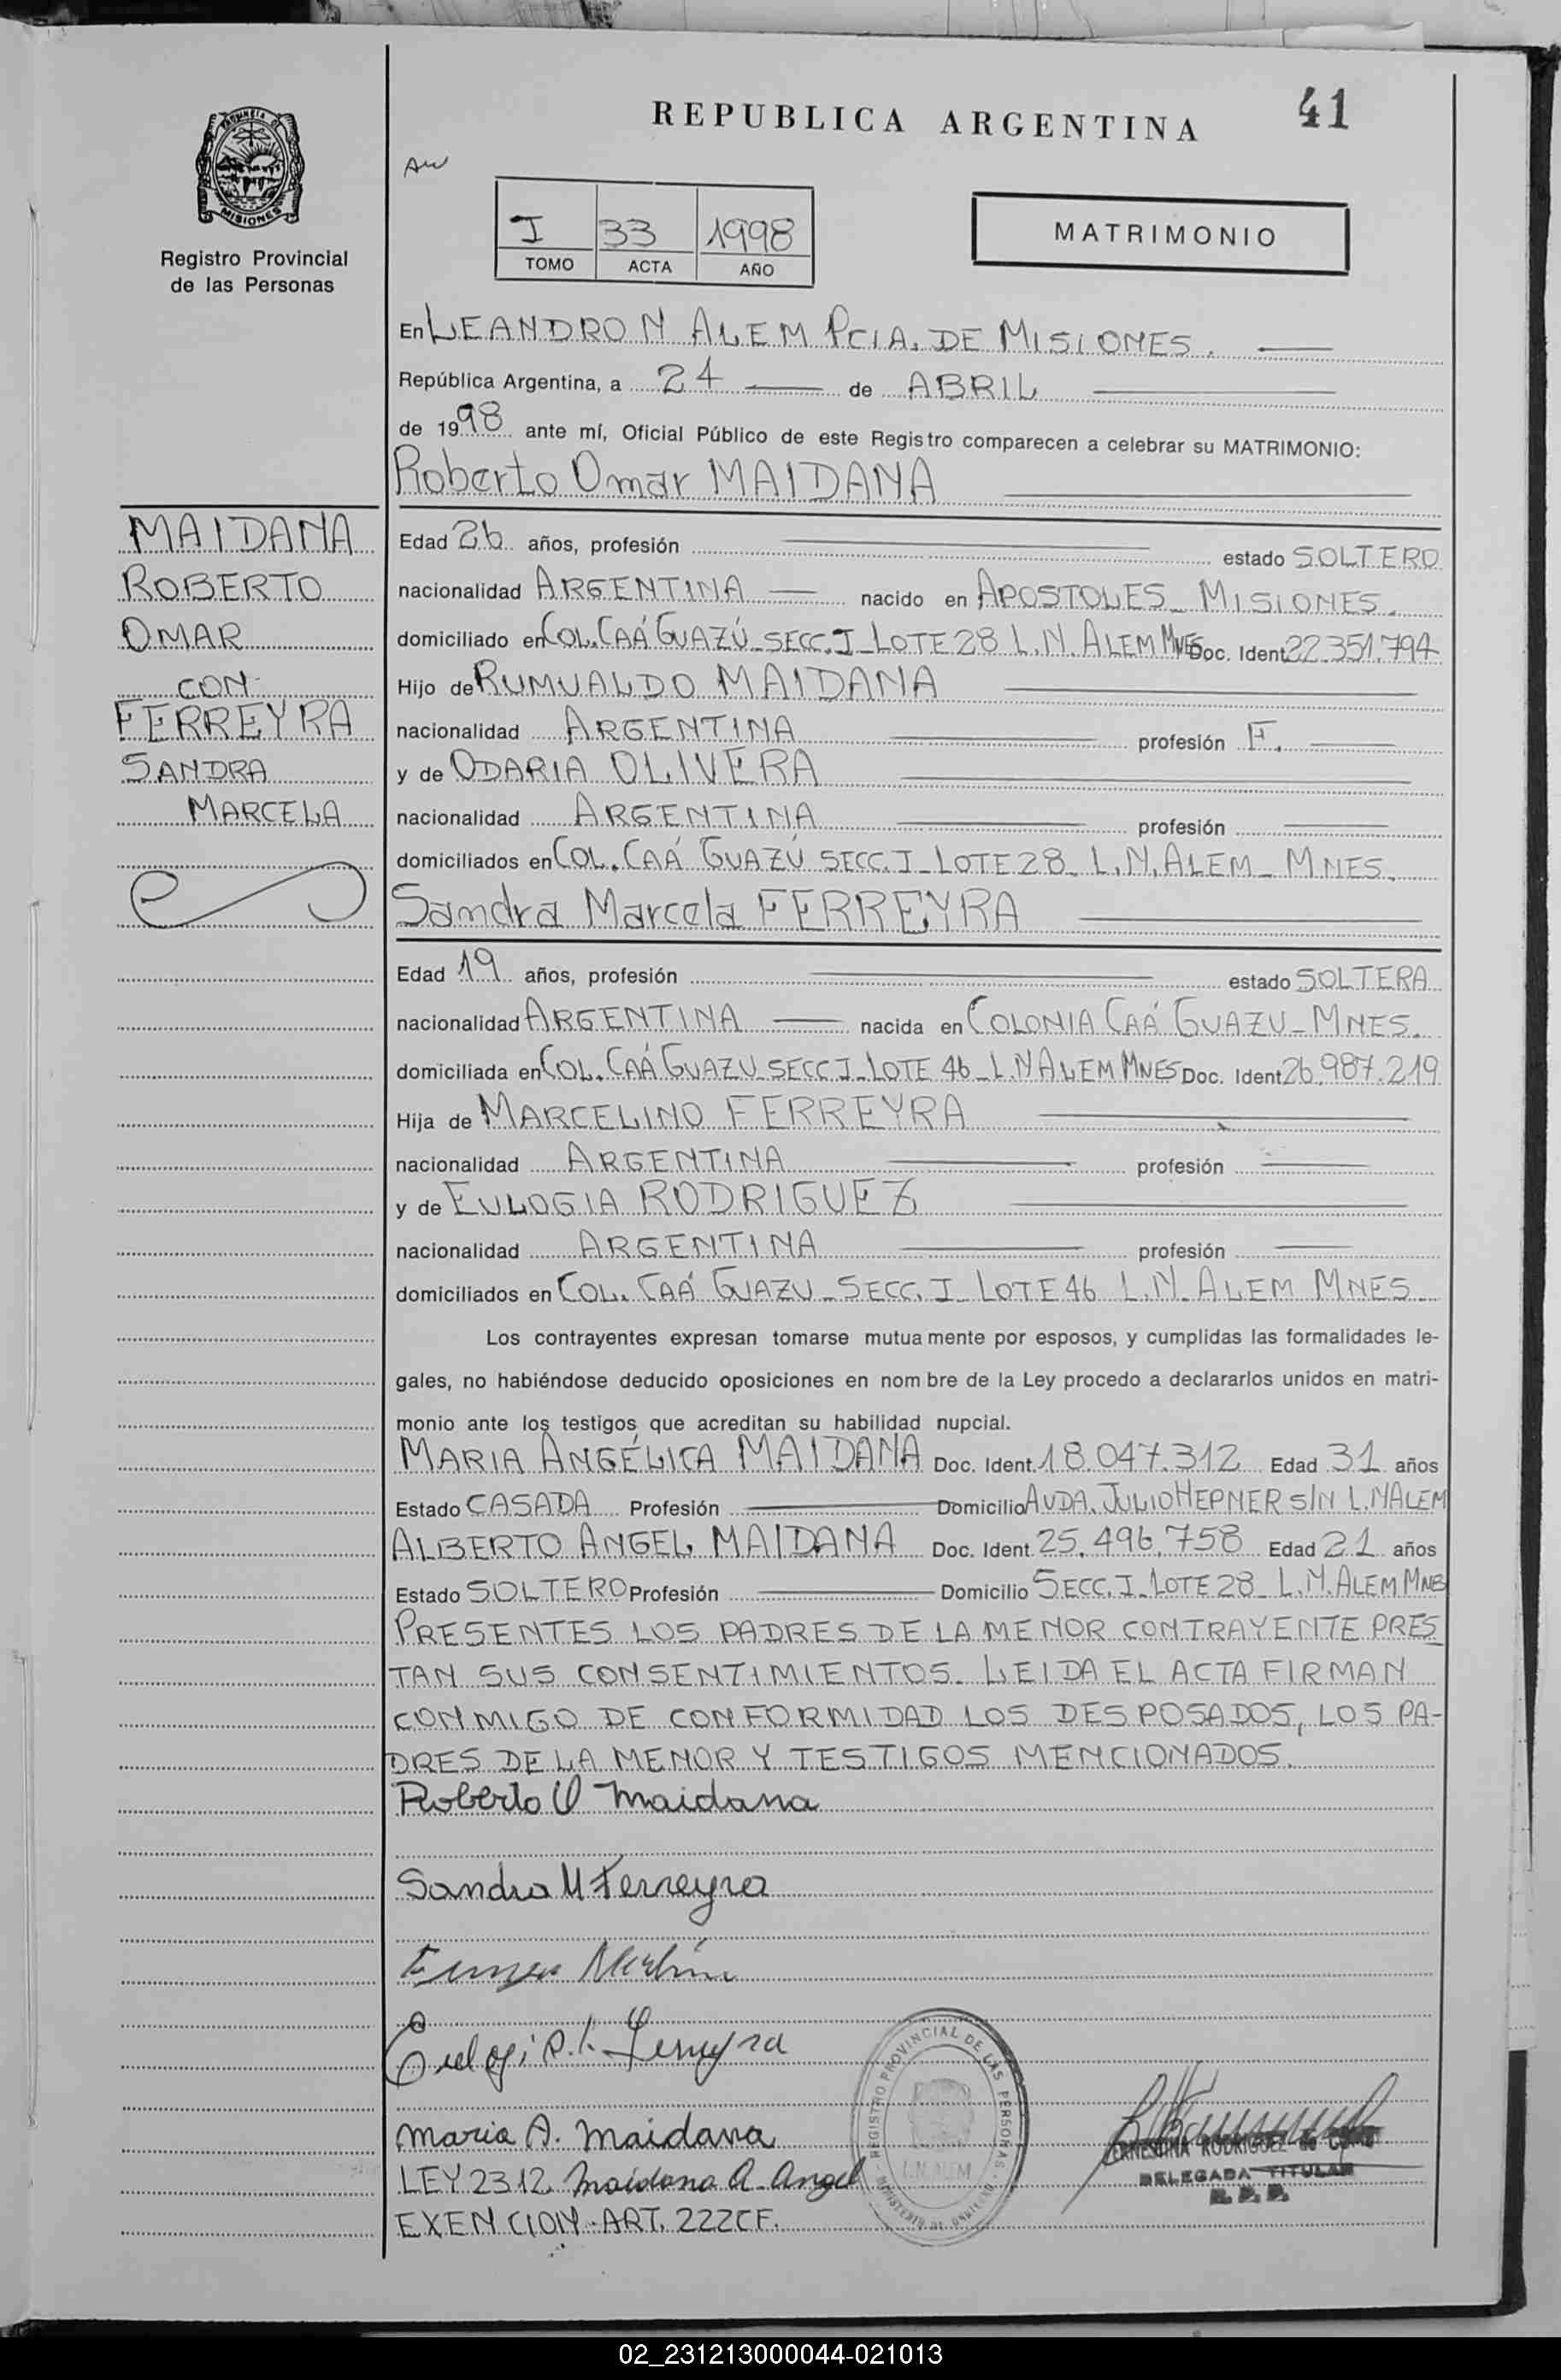 REPUBLICA ARGENTINA
41
PROVINCIA DE
MISIONES
Registro Provincial
de las Personas
I 33 1998
TOMO ACTA AÑO
MATRIMONIO
En LEANDRO N ALEM PCIA. DE MISIONES.
República Argentina, a 24 de ABRIL
de 1998 ante mí, Oficial Público de este Registro comparecen a celebrar su MATRIMONIO:
Roberto Omar MAIDANA
MAIDANA
ROBERTO
OMAR
CON
FERREYRA
SANDRA
MARCELA
Edad 26 años, profesión estado SOLTERO
nacionalidad ARGENTINA nacido en APOSTOLES - MISIONES.
domiciliado en COL. CAÁ GUAZÚ - SECC. I - LOTE 28 L.N. ALEM MNES Doc. Ident. 22.351.794
Hijo de RUMUALDO MAIDANA
nacionalidad ARGENTINA profesión F.
y de ODARIA OLIVERA
nacionalidad ARGENTINA profesión
domiciliados en COL. CAÁ GUAZÚ SECC. I - LOTE 28 - L.N. ALEM - MNES.
Sandra Marcela FERREYRA
Edad 19 años, profesión estado SOLTERA
nacionalidad ARGENTINA nacida en COLONIA CAÁ GUAZU - MNES.
domiciliada en COL. CAÁ GUAZU - SECC I - LOTE 46 - L.N ALEM MNES Doc. Ident 26.987.219
Hija de MARCELINO FERREYRA
nacionalidad ARGENTINA profesión
y de EULOGIA RODRIGUEZ
nacionalidad ARGENTINA profesión
domiciliados en COL. CAÁ GUAZU - SECC. I - LOTE 46 L.N. ALEM MNES
Los contrayentes expresan tomarse mutuamente por esposos, y cumplidas las formalidades le-
gales, no habiéndose deducido oposiciones en nombre de la Ley procedo a declararlos unidos en matri-
monio ante los testigos que acreditan su habilidad nupcial.
MARIA ANGÉLICA MAIDANA Doc. Ident. 18.047.312 Edad 31 años
Estado CASADA Profesión Domicilio AVDA. JULIO HEPNER S/N L.N ALEM
ALBERTO ANGEL MAIDANA Doc. Ident. 25.496.758 Edad 21 años
Estado SOLTERO Profesión Domicilio SECC. I - LOTE 28 - L.N. ALEM MNES
PRESENTES LOS PADRES DE LA MENOR CONTRAYENTE PRES
TAN SUS CONSENTIMIENTOS. LEIDA EL ACTA FIRMAN
CONMIGO DE CONFORMIDAD LOS DESPOSADOS, LOS PA-
DRES DE LA MENOR Y TESTIGOS MENCIONADOS.
Roberto O Maidana
Sandra M Ferreyra
Maria A. Maidana
LEY 2312. Maidana A. Angel
EXENCION - ART. 222 CF.
REGISTRO PROVINCIAL DE LAS PERSONAS
L.N. ALEM
ERNESTINA RODRIGUEZ de
DELEGADA TITULAR
R. P. P.
02_231213000044-021013